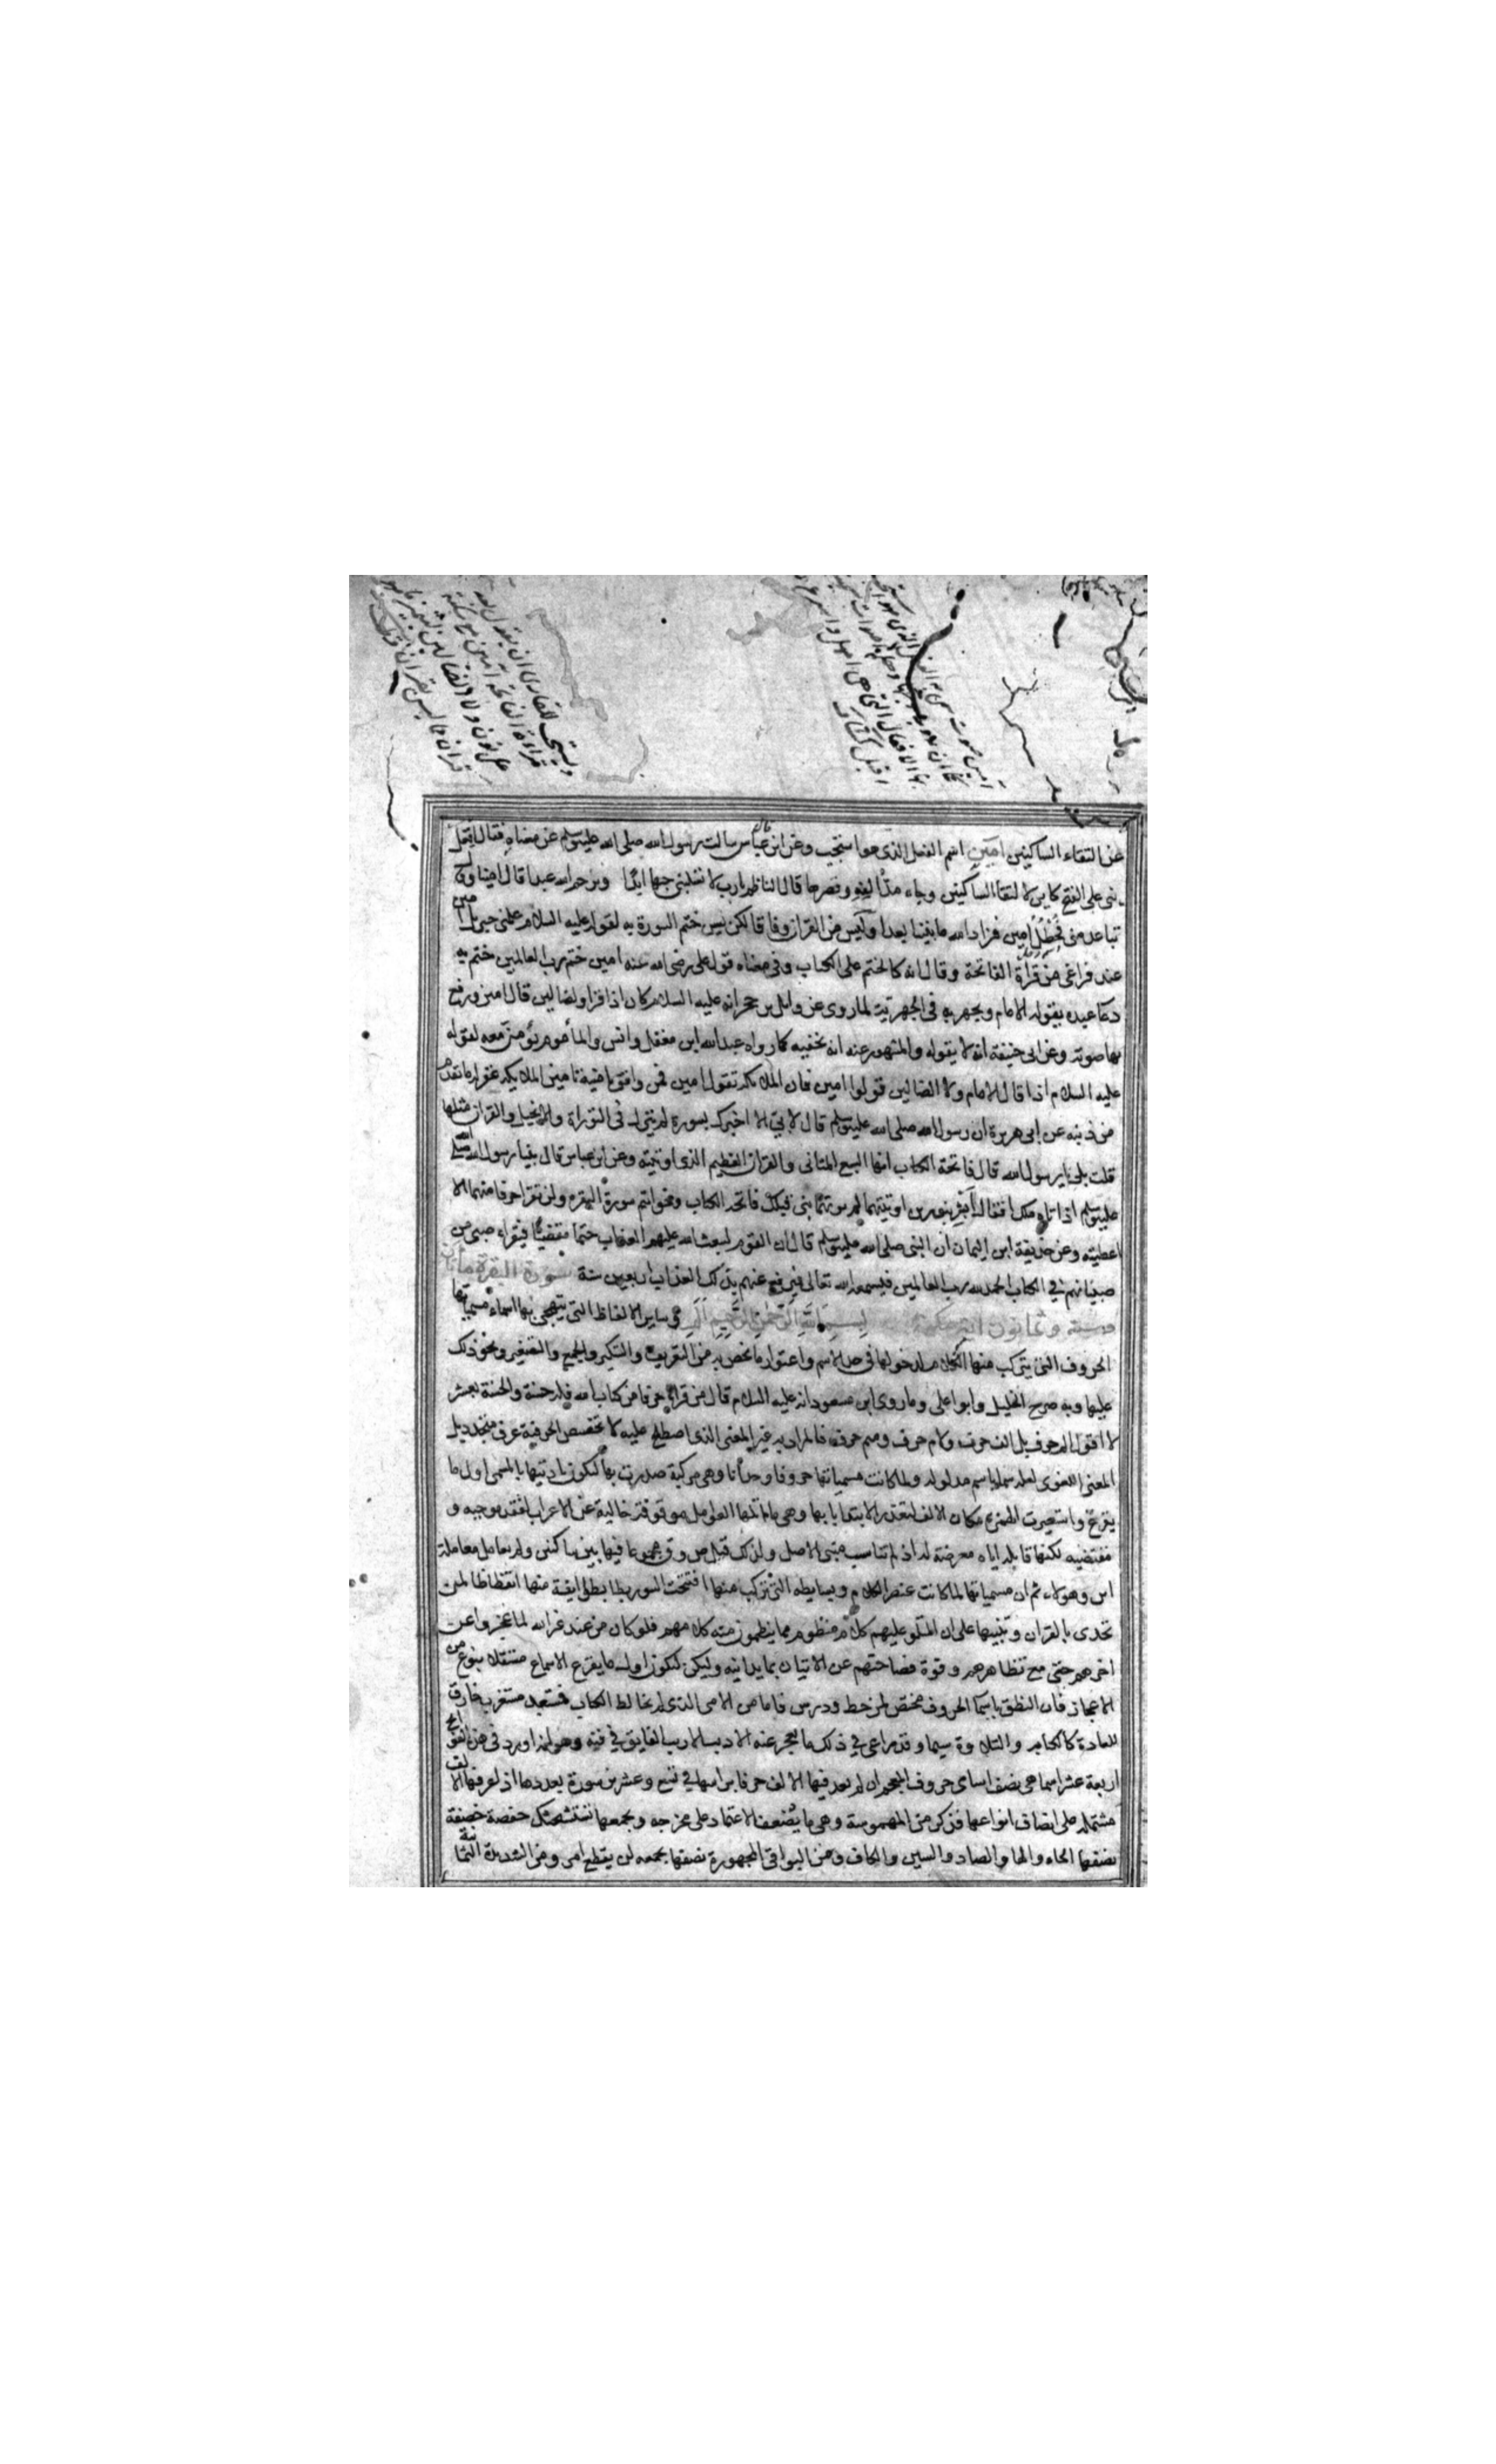 وليستحب للقارى ان يقول بعد
قراءة الفاتحة آمين مع سكتة
على نون ولا الضالين ليتميز ما هو
قرآن مما ليس بقرآن
آمين صوت سمى به الفعل الذى هو استجب
كما ان رويد
بها الافعال التى هى امهل واسرع
اقبل كشاف
عن التقاء الساكنين امين اسم الفعل الذى هو استجب وعن ابن عباس قال سالت رسول الله صلى الله عليه وسلم عن معناه فقال افعل
بنى على الفتح كاين لالتقا الساكنين وجاء مد الفه وقصرها قال الناظم يا رب لا تسلبنى حبها ابدا ويرحم الله عبدا قال امينا وقال
تباعد منى فطحل امين فزاد الله ما بيننا بعدا وليس من القران وفاقا لكن يسن ختم السورة به لقوله عليه السلام علمنى جبريل امين
عند فراغى من قراة الفاتحة وقال انه كالختم على الكتاب وفى معناه قول على رضى الله عنه امين ختم رب العالمين ختم به
دعا عبده يقوله الامام ويجهر به فى الجهرية لما روى عن وائل بن حجر انه عليه السلام كان اذا قرا ولا الضالين قال امين ورفع
بها صوته وعن ابى حنيفة انه لا يقوله والمشهور عنه انه يخفيه كما رواه عبد الله ابن مغفل وانس والماموم يؤمن معه لقوله
عليه السلام اذا قال الامام ولا الضالين قولوا امين فان الملائكة تقول امين فمن وافق تامينه تامين الملايكة غفر له ما تقدم
من ذنبه عن ابى هريرة ان رسول الله صلى الله عليه وسلم قال لابى الا اخبرك بسورة لم ينزل فى التوراة والانجيل والقران مثلها
قلت بلى يا رسول الله قال فاتحة الكتاب انها السبع المثانى والقران العظيم الذى اوتيته وعن ابن عباس قال بينا رسول الله صلى الله
عليه وسلم اذ اتاه ملك فقال ابشر بنورين اوتيتهما لم يوتهما نبى قبلك فاتحة الكتاب وخواتم سورة البقره ولن تقرا حرفا منهما الا
اعطيته وعن حذيفة ابن اليمان ان النبى صلى الله عليه وسلم قال ان القوم ليبعث الله عليهم العذاب حتما مقضيا فيقراء صبى من
صبيانهم فى الكتاب الحمد لله رب العالمين فيسمعه الله تعالى فيرفع عنهم بذلك العذاب اربعين سنة سورة البقرة مائتان
وستة وثمانون اية بسم الله الرحمن الرحيم الم هى ساير الالفاظ التى يتهجى بها اسماء مسمياتها
الحروف التى يتركب منها الكلام لدخولها فى حد الاسم واعتوار ما يخص به من التعريف والتنكير والجمع والتصغير ونحو ذلك
عليها وبه صرح الخليل وابو على وما روى ابن مسعود انه عليه السلام قال من قرا حرفا من كتاب الله فله حسنة والحسنة بعشر
لا اقول الم حرف بل الف حرف ولام حرف وميم حرف فالمراد به غير المعنى الذى اصطلح عليه لا تخصص الحرفية عرف متجدد بل
المعنى اللغوى لعله سماه باسم مدلوله ولما كانت مسمياتها حروفا وحدانا وهى مركبة صدرت بها لتكون تاديتها بالمسمى اول ما
يقرع واستعيرت الهمزة مكان الالف لتعذر الابتدا بها وهى ما لم تلها العوامل موقوفة خالية عن الاعراب لفقد موجبه و
مقتضيه لكنها قابله اياه معرضة له اذ لم تناسب مبنى الاصل ولذلك قيل ص وق مجموعا فيها بين ساكنين ولم يعامل معاملة
اين وهولاء ثم ان مسمياتها لما كانت عنصر الكلام وبسايطه التى تتركب منها افتتحت السور بطايفة منها ايقاظا لمن
تحدى بالقران وتنبيها على ان المتلو عليهم كلام منظوم مما ينظمون منه كلامهم فلو كان من عند غير الله لما عجزوا عن
اخرهم حتى مع تظاهرهم وقوة فصاحتهم عن الاتيان بما يدانيه وليكون اول ما يقرع الاسماع مستقلا بنوع من
الاعجاز فان النطق باسما الحروف مختص لمن خط ودرس فاما من الامى الذى لم يخالط الكتاب فمستبعد مستغرب خارق
للعادة كالكتابة والتلاوة سيما وقد راعى فى ذلك ما يعجز عنه الاديب الاريب الفايق فى فنه وهو انه اورد فى هذه الفواتح
اربعة عشر اسما هى نصف اسامى حروف المعجم ان لم يعد فيها الالف حرفا براسها فى تسع وعشرين سورة بعددها اذا عد فيها الالف
مشتملة على انصاف انواعها فذكر من المهموسة وهى ما يضعف الاعتماد على مخرجه ويجمعها ستشحثك خصفة
نصفها الحاء والها والصاد والسين والكاف ومن البواقى المجهورة نصفها يجمعه لن يقطع امر ومن الشديدة الثمانية